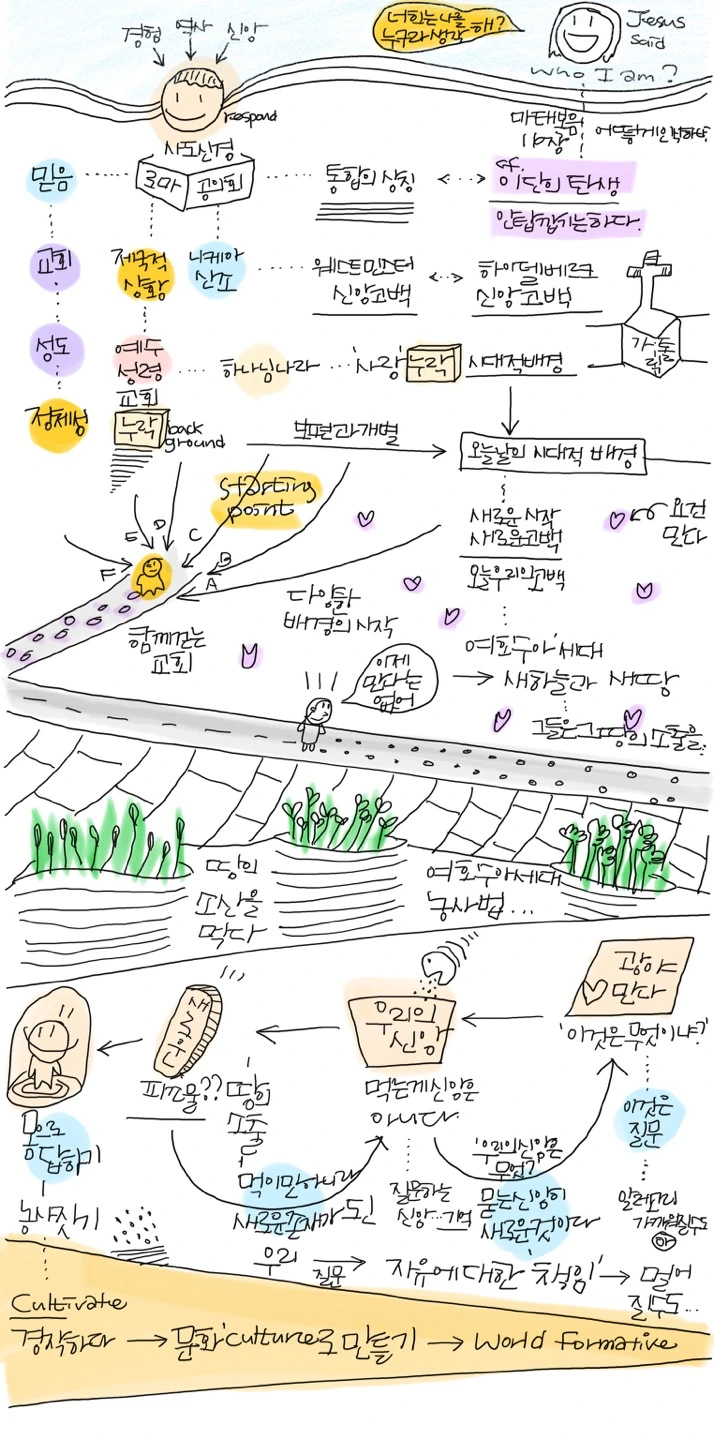 너희는 나를
누구라 생각해?
Jesus
said
who I am?
경험 역사 신앙
respond
마태복음
16장
사도신경
로마 공의회
믿음
통합의 상징
cf.
이단의 탄생
안탑깝기는하다.
교회
제국적
상황
니케아
신조
웨스트민스터
신앙고백
하이델베르크
신앙고백
가톨릭
성도
예수
성령
교회
하나님나라
'사랑'
누락
시대적배경
정체성
누락
back
ground
보편과 개별
오늘날의 시대적 배경
starting
point
새로운 시작
새로운 고백
오늘 우리의 고백
요건
만다
F E D C B A
다양한
배경의 시작
함께걷는
교회
이제
만다는
없어
여호수아 세대
새하늘과 새땅
그들은 그 땅의 소출을
땅의
소산을
먹다
여호수아세대
농사법...
광야
만다
'이것은 무엇이냐?'
우리의
신앙
먹는게 신앙은
아니다
피조물?? 땅의
소출
몸으로
응답하기
농사짓기
먹이만 아니라
새로운 존재가 되
질문하는
신앙...기억
'우리의 신앙은
무엇?
묻는 신앙이
새로운 것이다
이것은
질문
가까워질수도
우리
질문
자유에 대한 '책임'
멀어
질수도...
Cultivate
경작하다 → 문화'culture로 만들기 → World Formative